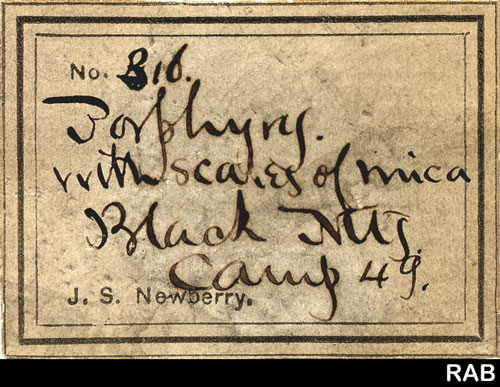 No. 316.
Porphyry.
with scales of mica
Black Mts.
Camp 49.
J. S. Newberry.
RAB